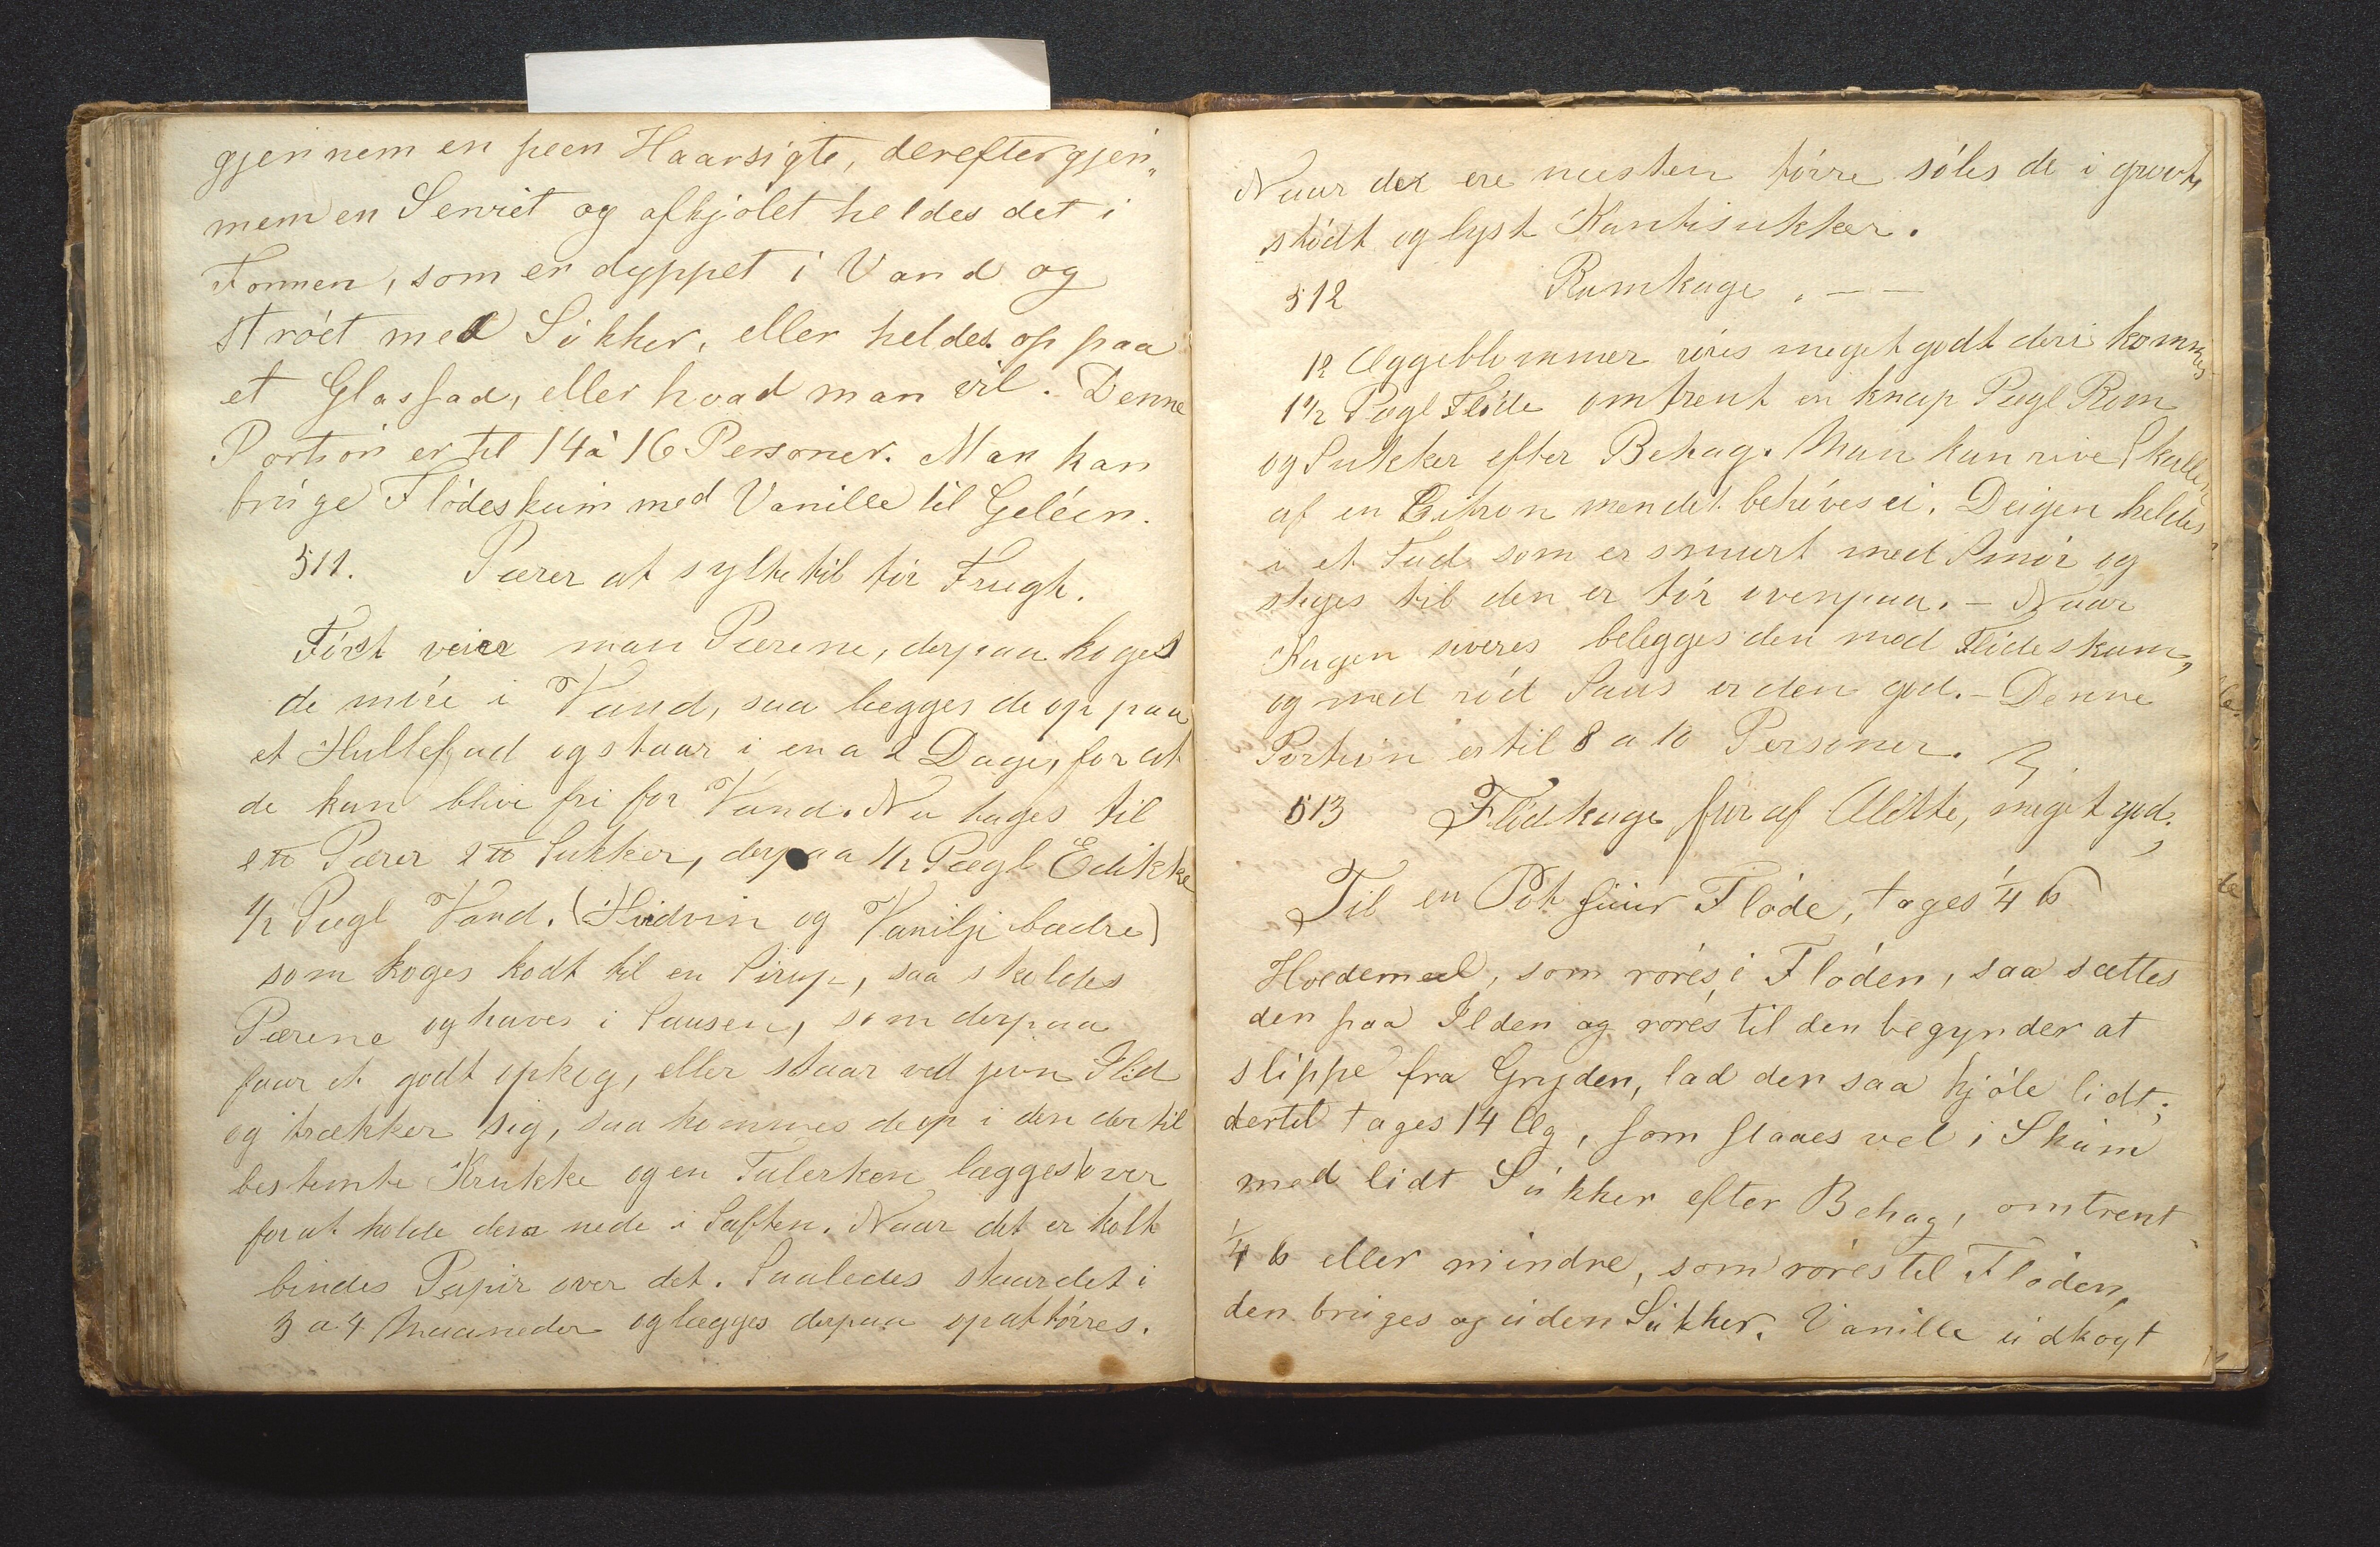 gjennem en peen Haarsigte, derefter gjen„
nem en Serviet og afkjølet heldes det i
Formen, som er dyppet i Vand og
strøet med Sukker, eller heldes op paa
et Glasfad, eller hvad man vil. Denne
Portion er til 14 à 16 Personer. Man kan
bruge Flødeskum med Vanille til Geléen.
511. Pærer at sylte til tør Frugt.
Først veier man Pærene, derpaa koges
de møre i Vand, saa lægges de op paa
et Hullefad og staar i en a 2 Dage, for at
de kan blive fri for Vand. Nu tages til
2 ℔ Pærer 2 ℔ Sukker, derpaa 1/2 Pægl Edikke
1/2 Pægl Vand. (Hvidvin og Vanilje bædre)
som koges kodt til en Sirup, saa skoldes
Pærene og haves i Sausen, som derpaa
faar et godt opkog, eller staar ved jevn Ild
og trækker sig, saa kommes de op i den dertil
bestemte Krukke og en Talerken lægges over
for at holde dem nede i Saften. Naar det er koldt
bindes Papir over det. Saaledes staar det i
3 a 4 Maaneder og lægges derpaa op at tørres.
Naar der ere næsten tørre søles de i grovt
stødt og lyst Kantisukker.
512 Romkage. — —
12 Æggeblommer røres meget godt deri kommes
1 1/2 Pægl Fløde omtrent en knap Pægl Rom
og Sukker efter Behag. Man kan rive Skallen
af en Citron men det behøves ei. Deigen heldes
i et Fad som er smurt med Smør og
steges til den er tør ovenpaa. – Naar
Kagen sveres belegges den med Flødeskum,
og med rød Saus er den god. – Denne
Portion er til 8 a 10 Personer.
513 Flødkage suur af Ditte, meget god;
Til en Pot suur Fløde, tages 1/4 ℔
Hvedemeel, som røres i Fløden, saa sættes
den paa Ilden og røres til den begynder at
slippe fra Gryden, lad den saa kjøle lidt;
dertil tages 14 Æg, som slaaes vel i Skum
med lidt Sukker efter Behag, omtrent
1/4 ℔ eller mindre, som røres til Fløden,
den bruges og uden Sukker. Vanille udkogt